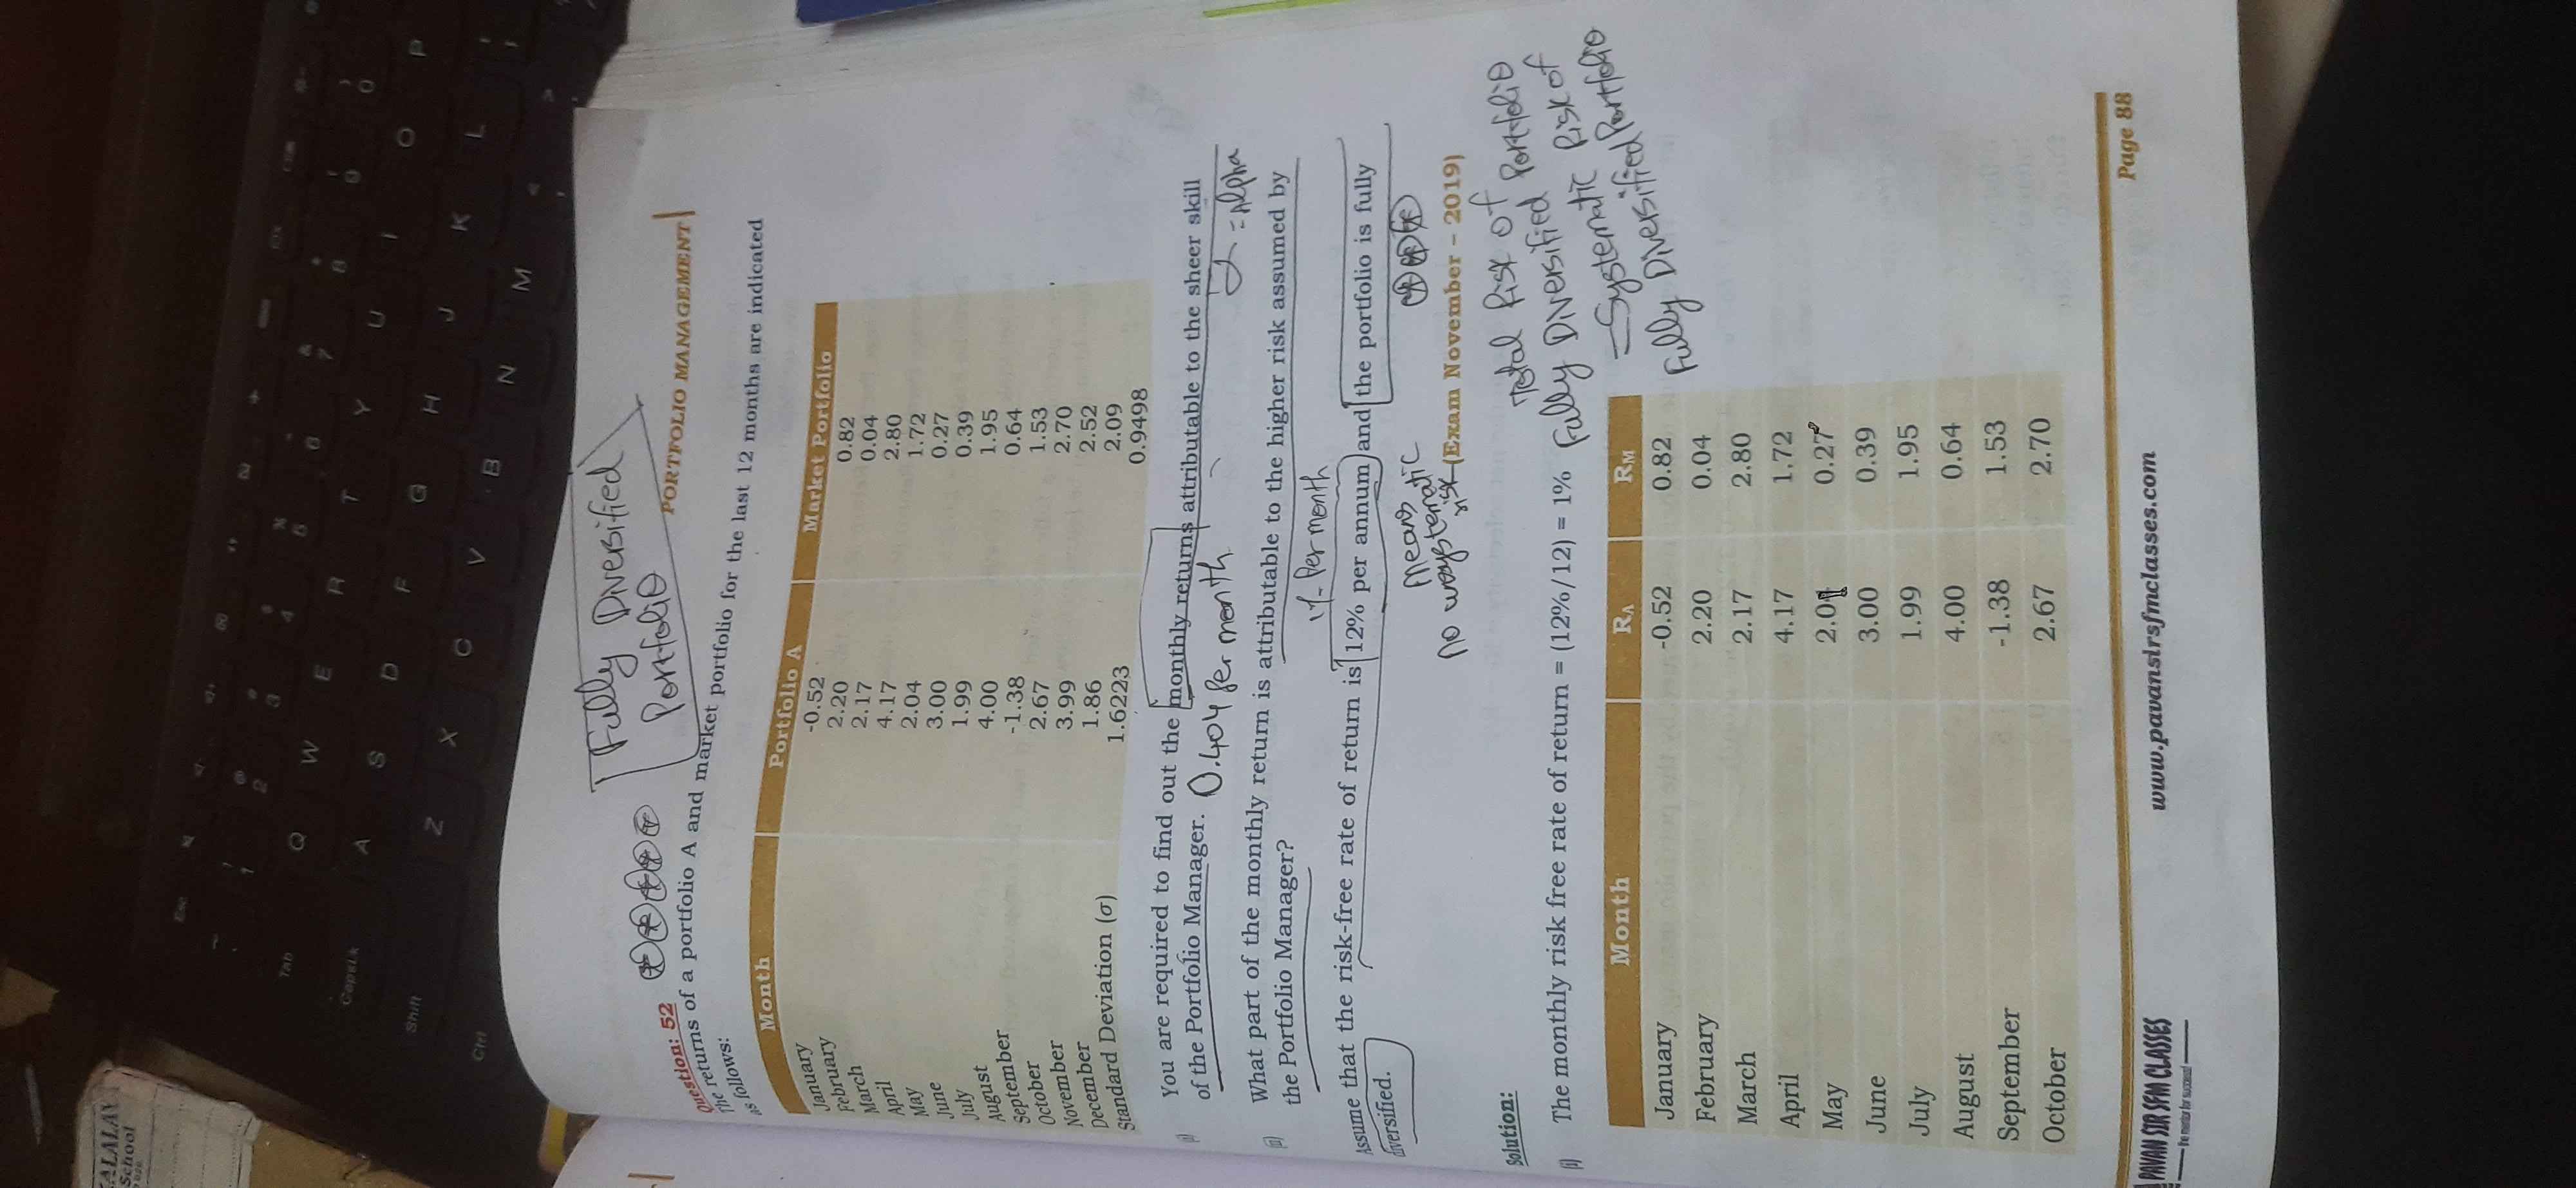 ALALAY
School
Fully Diversified
Portfolio
PORTFOLIO MANAGEMENT
Question: 52
The returns of a portfolio A and market portfolio for the last 12 months are indicated
as follows:
Month Portfolio A Market Portfolio
January -0.52 0.82
February 2.20 0.04
March 2.17 2.80
April 4.17 1.72
May 2.04 0.27
June 3.00 0.39
July 1.99 1.95
August 4.00 0.64
September -1.38 1.53
October 2.67 2.70
November 3.99 2.52
December 1.86 2.09
Standard Deviation (σ) 1.6223 0.9498
(i) You are required to find out the monthly returns attributable to the sheer skill
of the Portfolio Manager. 0.404 Per month = Alpha
(ii) What part of the monthly return is attributable to the higher risk assumed by
the Portfolio Manager?
1% Per month
Assume that the risk-free rate of return is 12% per annum and the portfolio is fully
diversified.
Means
no unsystematic
risk
(Exam November – 2019)
Total Risk of
Fully Diversified Portfolio
= Systematic Risk of
Fully Diversified Portfolio
Solution:
(i) The monthly risk free rate of return = (12%/12) = 1%
Month RA RM
January -0.52 0.82
February 2.20 0.04
March 2.17 2.80
April 4.17 1.72
May 2.04 0.27
June 3.00 0.39
July 1.99 1.95
August 4.00 0.64
September -1.38 1.53
October 2.67 2.70
PAVAN SIR SFM CLASSES
www.pavansirsfmclasses.com
Page 88
Esc
Tab
CapsLk
Shift
Ctrl
Q W E R T Y U I O P
A S D F G H J K L
Z X C V B N M